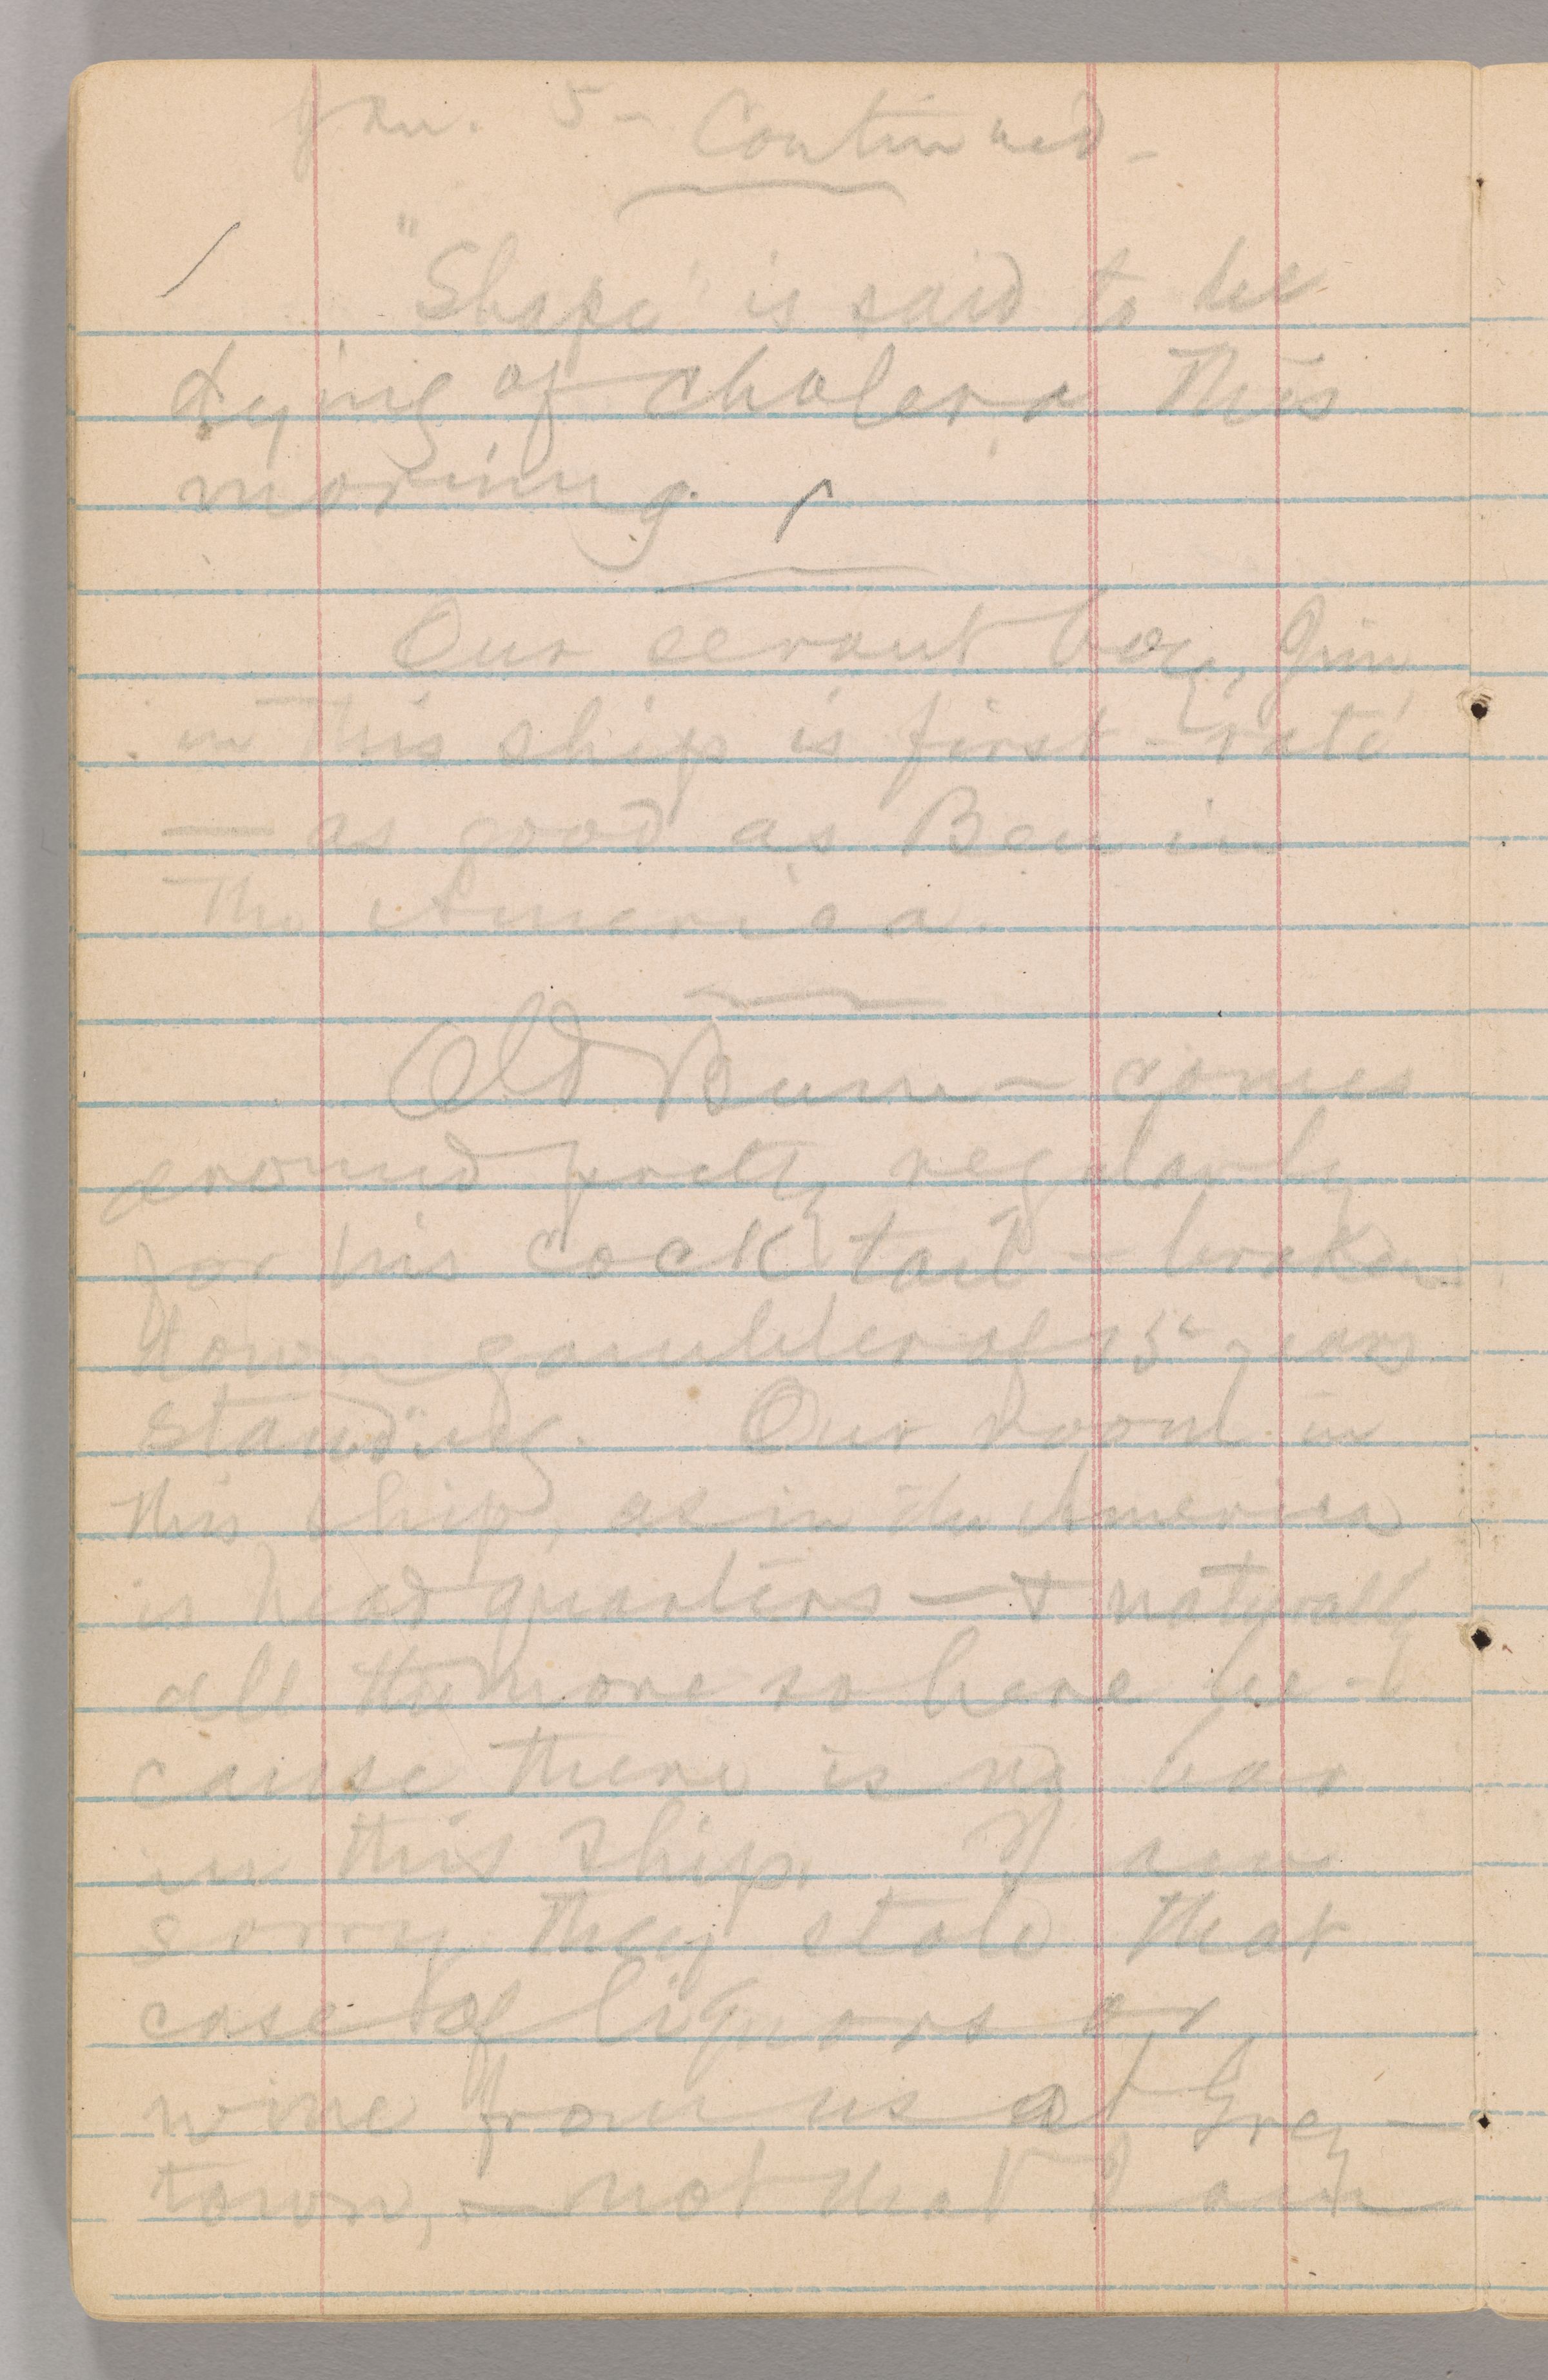 Jan. 5 - Continued -
"Shape" is said to be
dying of cholera this
morning.
Our servant boy, Jim,
in this ship is first-rate
— as good as Ben in
the America.
Old Bunn — comes
around pretty regularly
for his cocktail — broken
down gambler of 15 years
standing. Our room in
this ship, as in the America
is headquarters — & naturally
all the more so here be-
cause there is no bar
in this ship. I am
sorry they stole that
case of liquors or
wine from us at Grey-
town, — not that I am